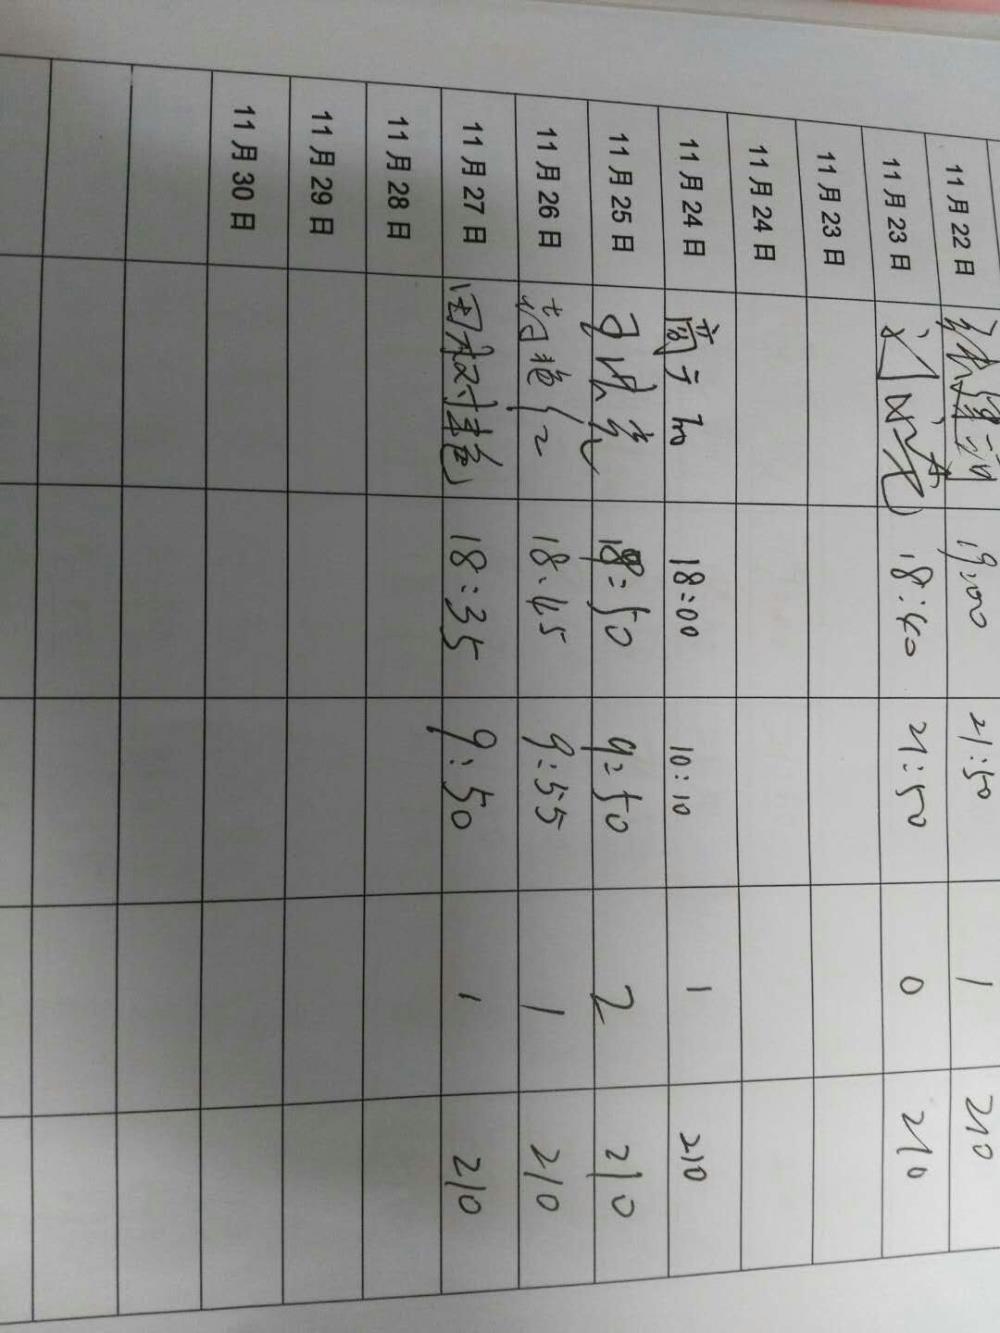 11月22日 19:00 21:50 1 210
11月23日 18:40 21:50 0 210
11月23日
11月24日
11月24日 18:00 10:10 1 210
11月25日 18:50 9:50 2 210
11月26日 18:45 9:55 1 210
11月27日 18:35 9:50 1 210
11月28日
11月29日
11月30日